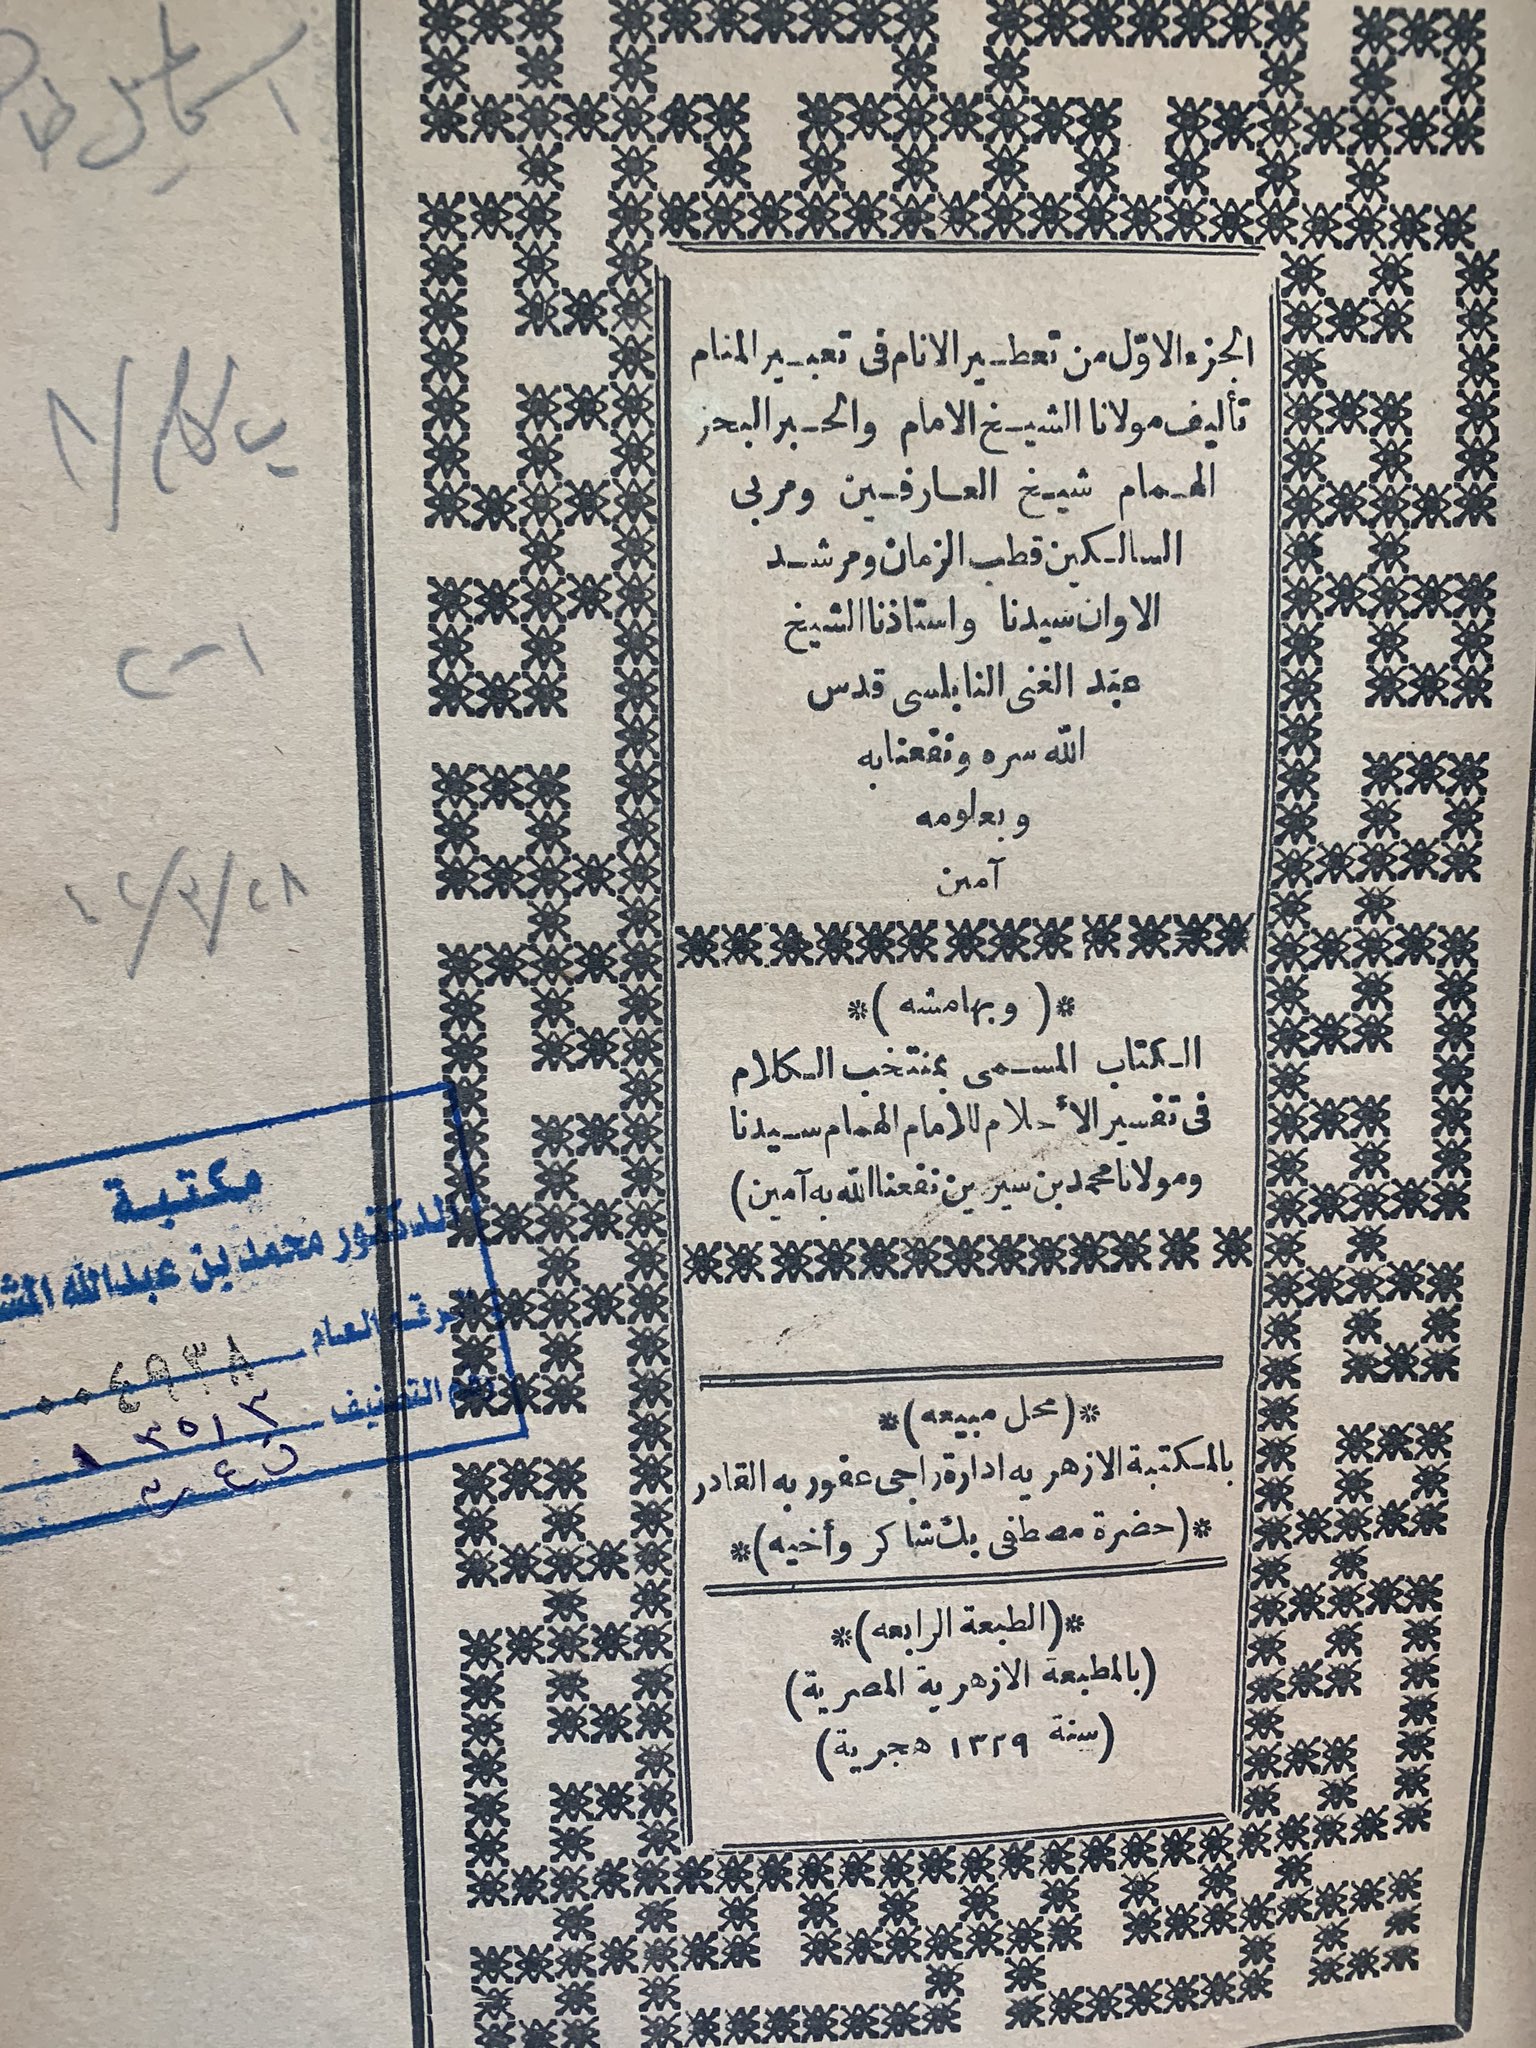 الجزء الاوّل من تعطير الانام فى تعبير المنام
تأليف مولانا الشيخ الامام والحبر البحر
الهمام شيخ العارفين ومربى
السالكين قطب الزمان ومرشد
الاوان سيدنا واستاذنا الشيخ
عبد الغنى النابلسى قدس
الله سره ونفعنا به
وبعلومه
آمين
*( وبهامشه )*
الكتاب المسمى بمنتخب الكلام
فى تفسير الأحلام للامام الهمام سيدنا
ومولانا محمد بن سيرين نفعنا الله به آمين)
*(محل مبيعه)*
بالمكتبة الازهريه ادارة راجى عفو ربه القادر
*(حضرة مصطفى بك شاكر وأخيه)*
*(الطبعة الرابعه)*
(بالمطبعة الازهرية المصرية)
(سنة ١٣٢٩ هجرية)
اسماعيل
٢٨/٣/
مكتبة
الدكتور محمد بن عبدالله
الرقم العام ٠٠٤٩٣٨
رقم التصنيف